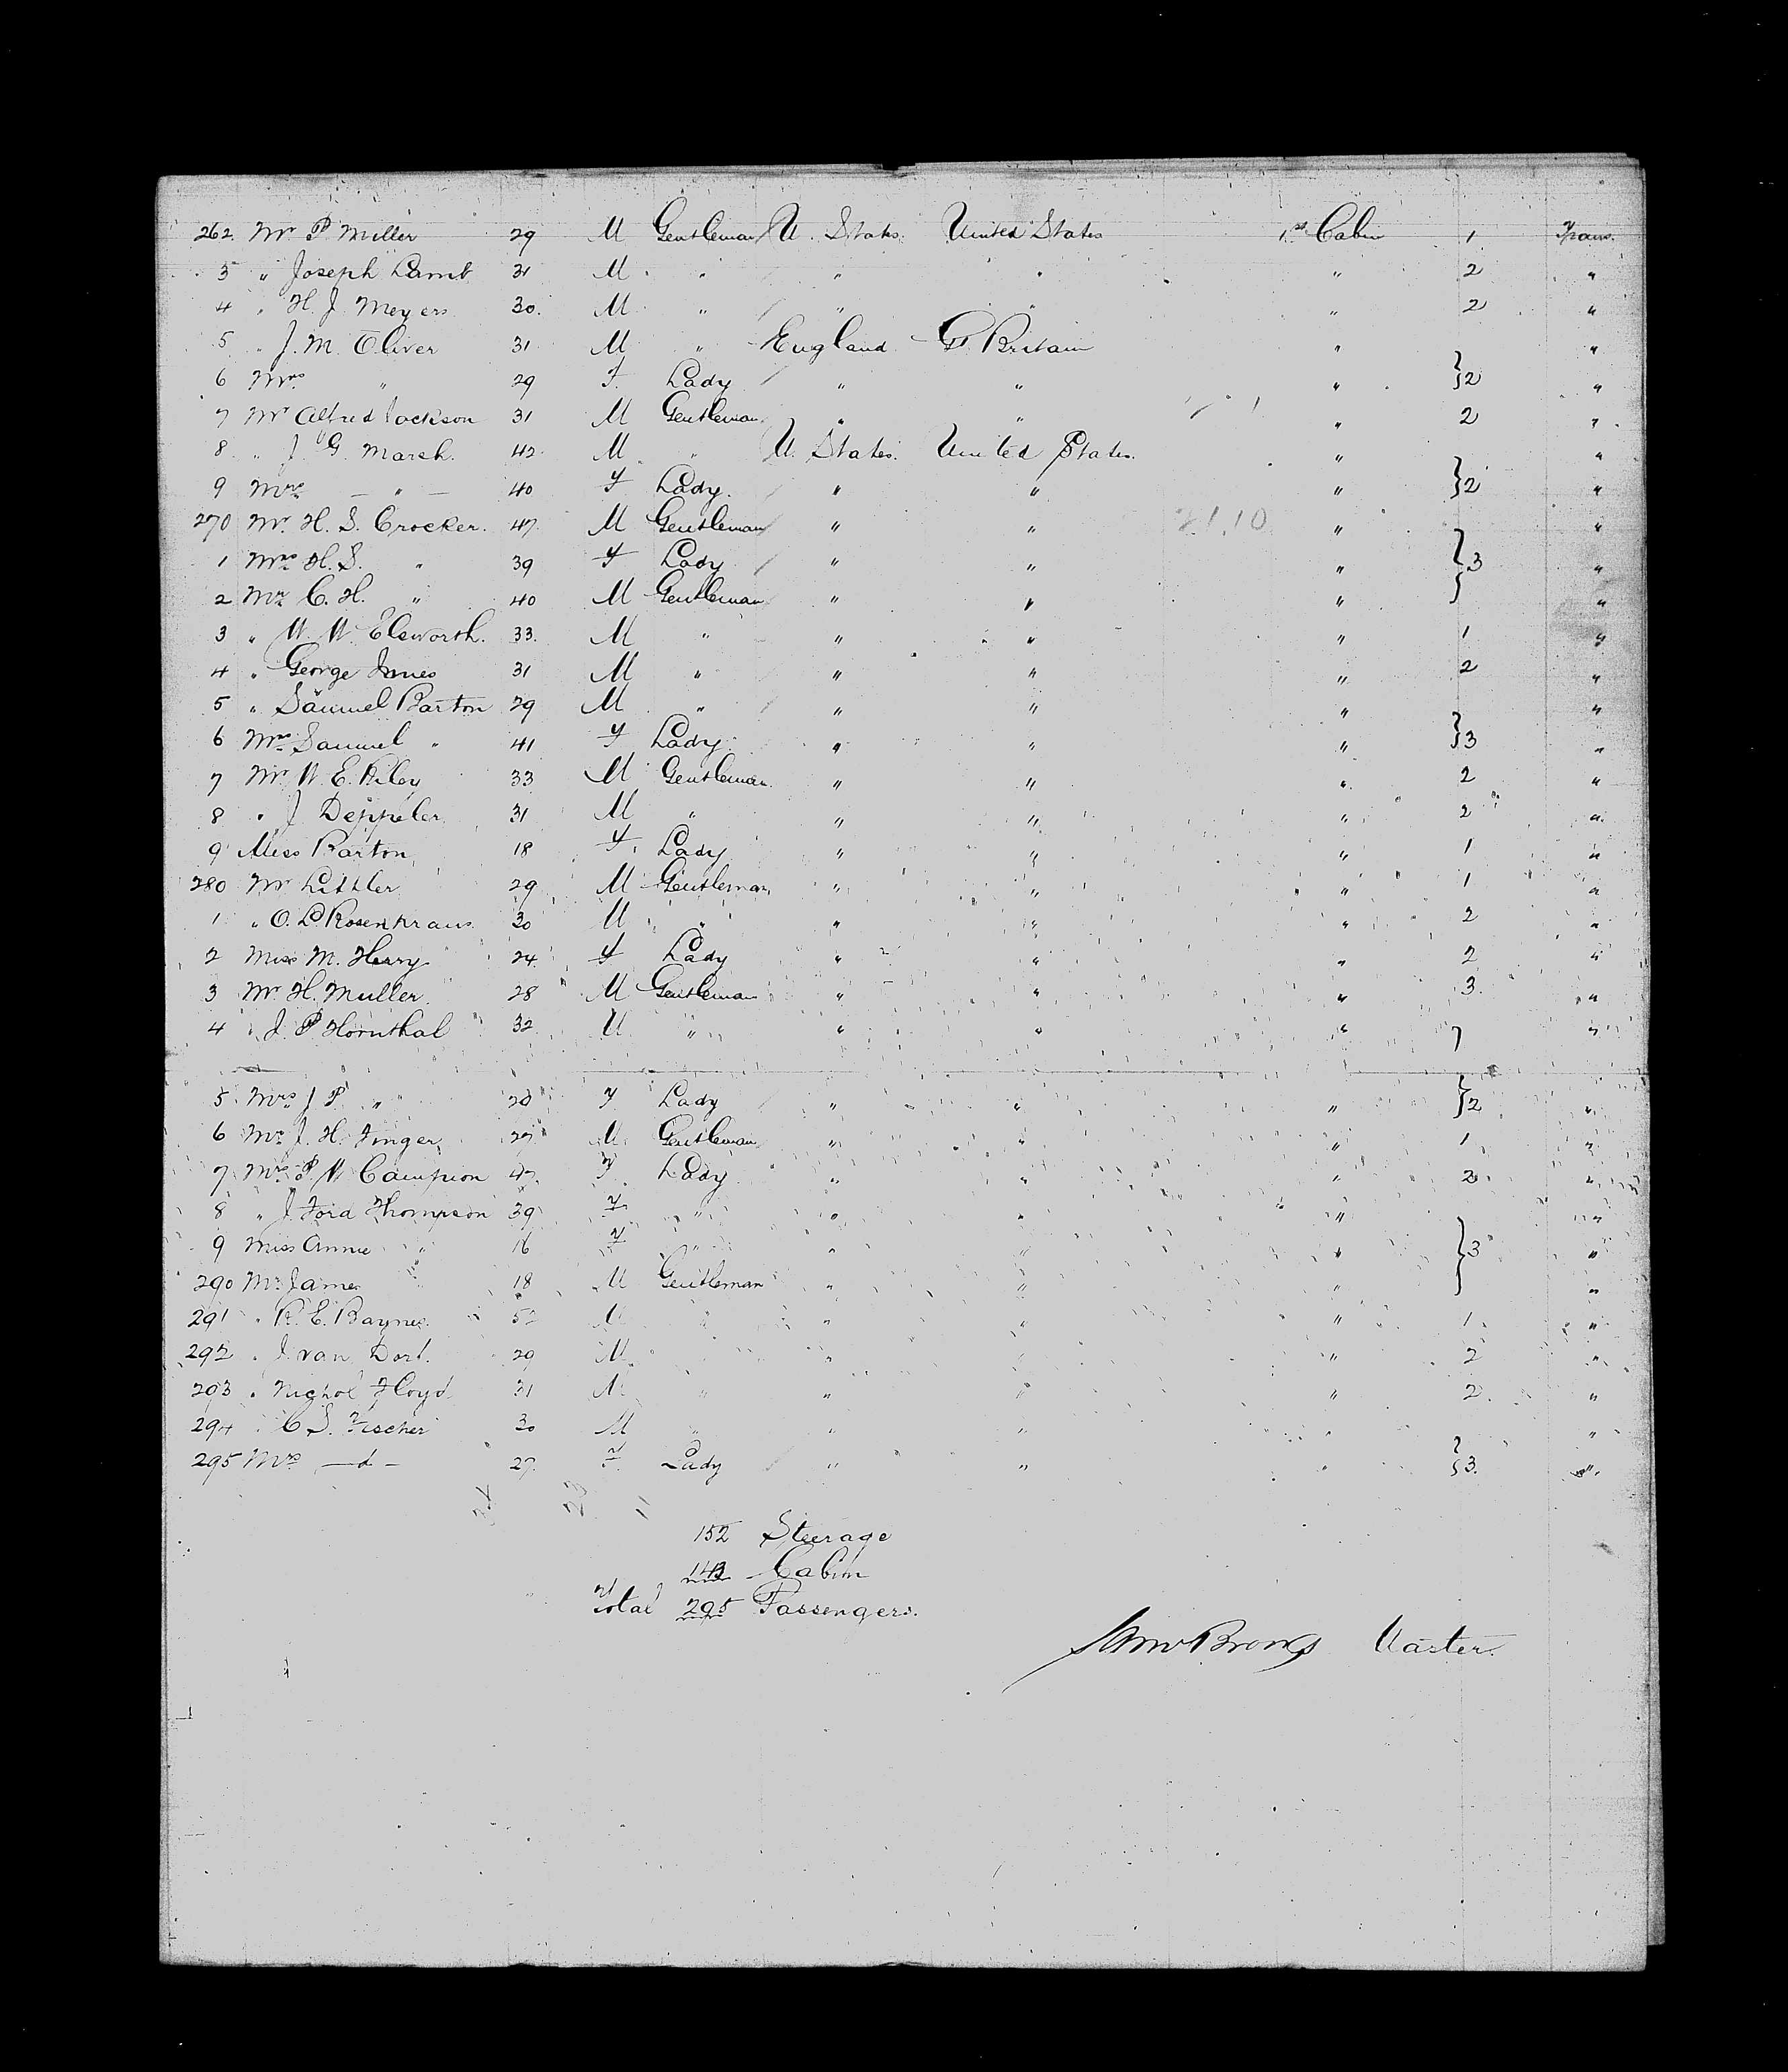 262. Mr P. Miller 29 M Gentleman U. States. United States 1st Cabin 1. Trans.
3 " Joseph Lamb 31 M " " " " 2 "
4 " H. J. Meyers 30. M " " " " 2 "
5 " J. M. Oliver 31 M " England. Gt. Britain " "
6 Mrs " 29 F. Lady " " " }2 "
7 Mr Alfred Jackson 31 M Gentleman " " " 2 "
8 " J. G. Marsh. 42 M " U. States. United States. " "
9 Mrs — " — 40 F Lady. " " " }2 "
270 Mr. H. S. Crocker. 47. M Gentleman " " 21.10 " "
1 Mrs H. S. " 39 F Lady " " " }3 "
2 Mr. C. H. " 40 M Gentleman " " " "
3 " W. W. Elsworth. 33. M " " " " 1 "
4 " George Innes 31 M " " " " 2 "
5 " Samuel Barton 29 M " " " " "
6 Mrs Samuel " 41 F Lady " " " }3 "
7 Mr. W. E. Riley 33 M Gentleman. " " " 2 "
8 " J Deppeler 31 M " " " " 2 "
9 Miss Barton 18 F. Lady " " " 1 "
280 Mr Littler 29 M Gentleman " " " 1 "
1 " O. L. Rosenkrans 30 M " " " " 2 "
2 Miss M. Henry 24 F Lady " " " 2 "
3 Mr. H. Muller 28 M Gentleman " " " 3. "
4 " J. P. Hornthal 32 M " " " " "
5 Mrs J P " 20 F Lady " " " }2 "
6 Mr. J. H. Finger 27 M Gentleman " " " 1 "
7 Mrs P. W Campion 47. F Lady " " " 2 "
8 " J. Ford Thompson 39 F " " " " "
9 Miss Annie " 16 F " " " " }3 "
290 Mr. James 18 M Gentleman " " " "
291 " R. E. Bayne. 52 M " " " " 1 "
292 " J. van Dort. 29 M " " " 2 "
293 " Nichol Floyd 31 M " " " " 2. "
294 " C S. Fischer 30 M " " " " "
295 Mrs —d— 27. F. Lady " " " }3. "
152 Steerage
143 Cabin
Total 295 Passengers.
Master.